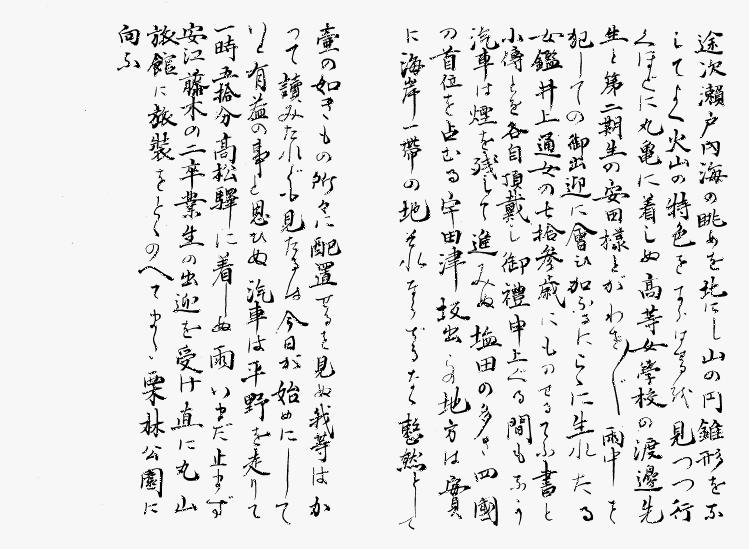 途次瀬戸内海の眺めを北にし山の円錐形をな
してよく火山の特色を　見つつ行
くほどに丸亀に着しぬ高等女学校の渡邊先
生と第二期生の安田様とがわざ〳〵雨中を
犯しての御出迎に會ひ加ふるにこゝに生れたる
女鑑井上通女の七拾参歳にものせるてふ書と
小傳とを各自頂戴し御禮申上ぐる間もなう
汽車は煙を残して進みぬ塩田の多き四國
の首位を占むる宇田津坂出の地方は實
に海岸一帯の地それならざるなく整然として
壷の如きもの所々に配置せるを見ぬ我等はか
つて讀みたれども見たるは今日が始めにして
いと有益の事と思ひぬ汽車は平野を走りて
一時五拾分高松驛に着しぬ雨いまだ止まず
安江藤木の二卒業生の出迎を受け直に丸山
旅館に旅装をとくのへてまづ栗林公園に
向ふ